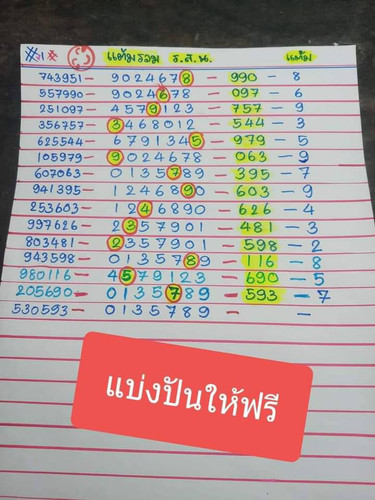 #1* แต้มรวม ร.ส.น. แต้ม
743951 – 9024678 – 990 – 8
557990 – 9024678 – 097 – 6
251097 – 4579123 – 757 – 9
356757 – 3468012 – 544 – 3
625544 – 6791345 – 979 – 5
105979 – 9024678 – 063 – 9
607063 – 0135789 – 395 – 7
941395 – 1246890 – 603 – 9
253603 – 1246890 – 626 – 4
997626 – 2357901 – 481 – 3
803481 – 2357901 – 598 – 2
943598 – 0135789 – 116 – 8
980116 – 4579123 – 690 – 5
205690 – 0135789 – 593 – 7
530593 – 0135789 – –
แบ่งปันให้ฟรี